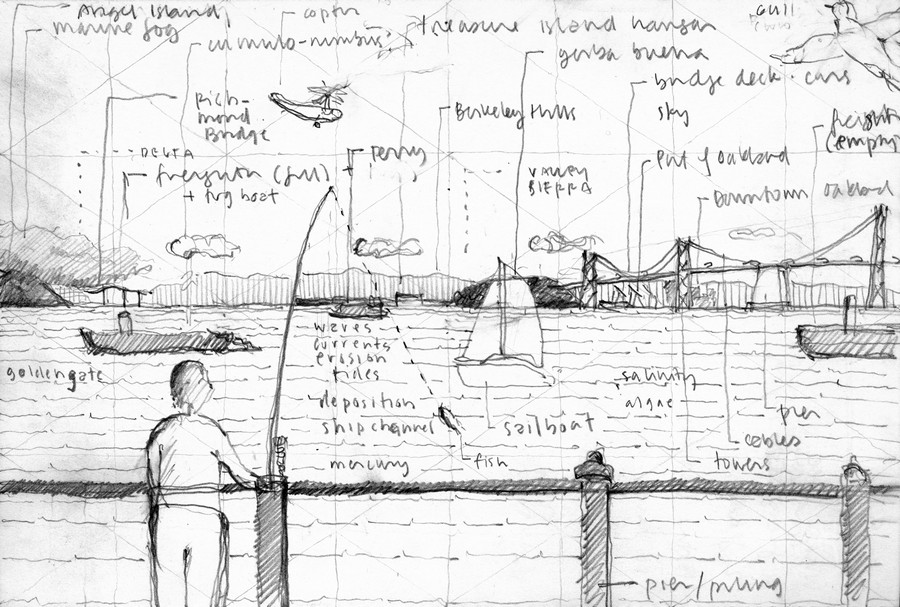 Angel Island,
marine fog
copter
cumulo-nimbus
treasure island hangar
yerba buena
gull
bridge deck · cars
sky
Rich-
mond
Bridge
Berkeley Hills
freight
(empty
DELTA
(full)
+ tug boat
ferry
VALLEY
SIERRA
port of oakland
Downtown oakland
waves
currents
erosion
tides
goldengate
deposition
ship channel
mercury
sailboat
fish
salinity
algae
pier
cables
towers
pier/piling